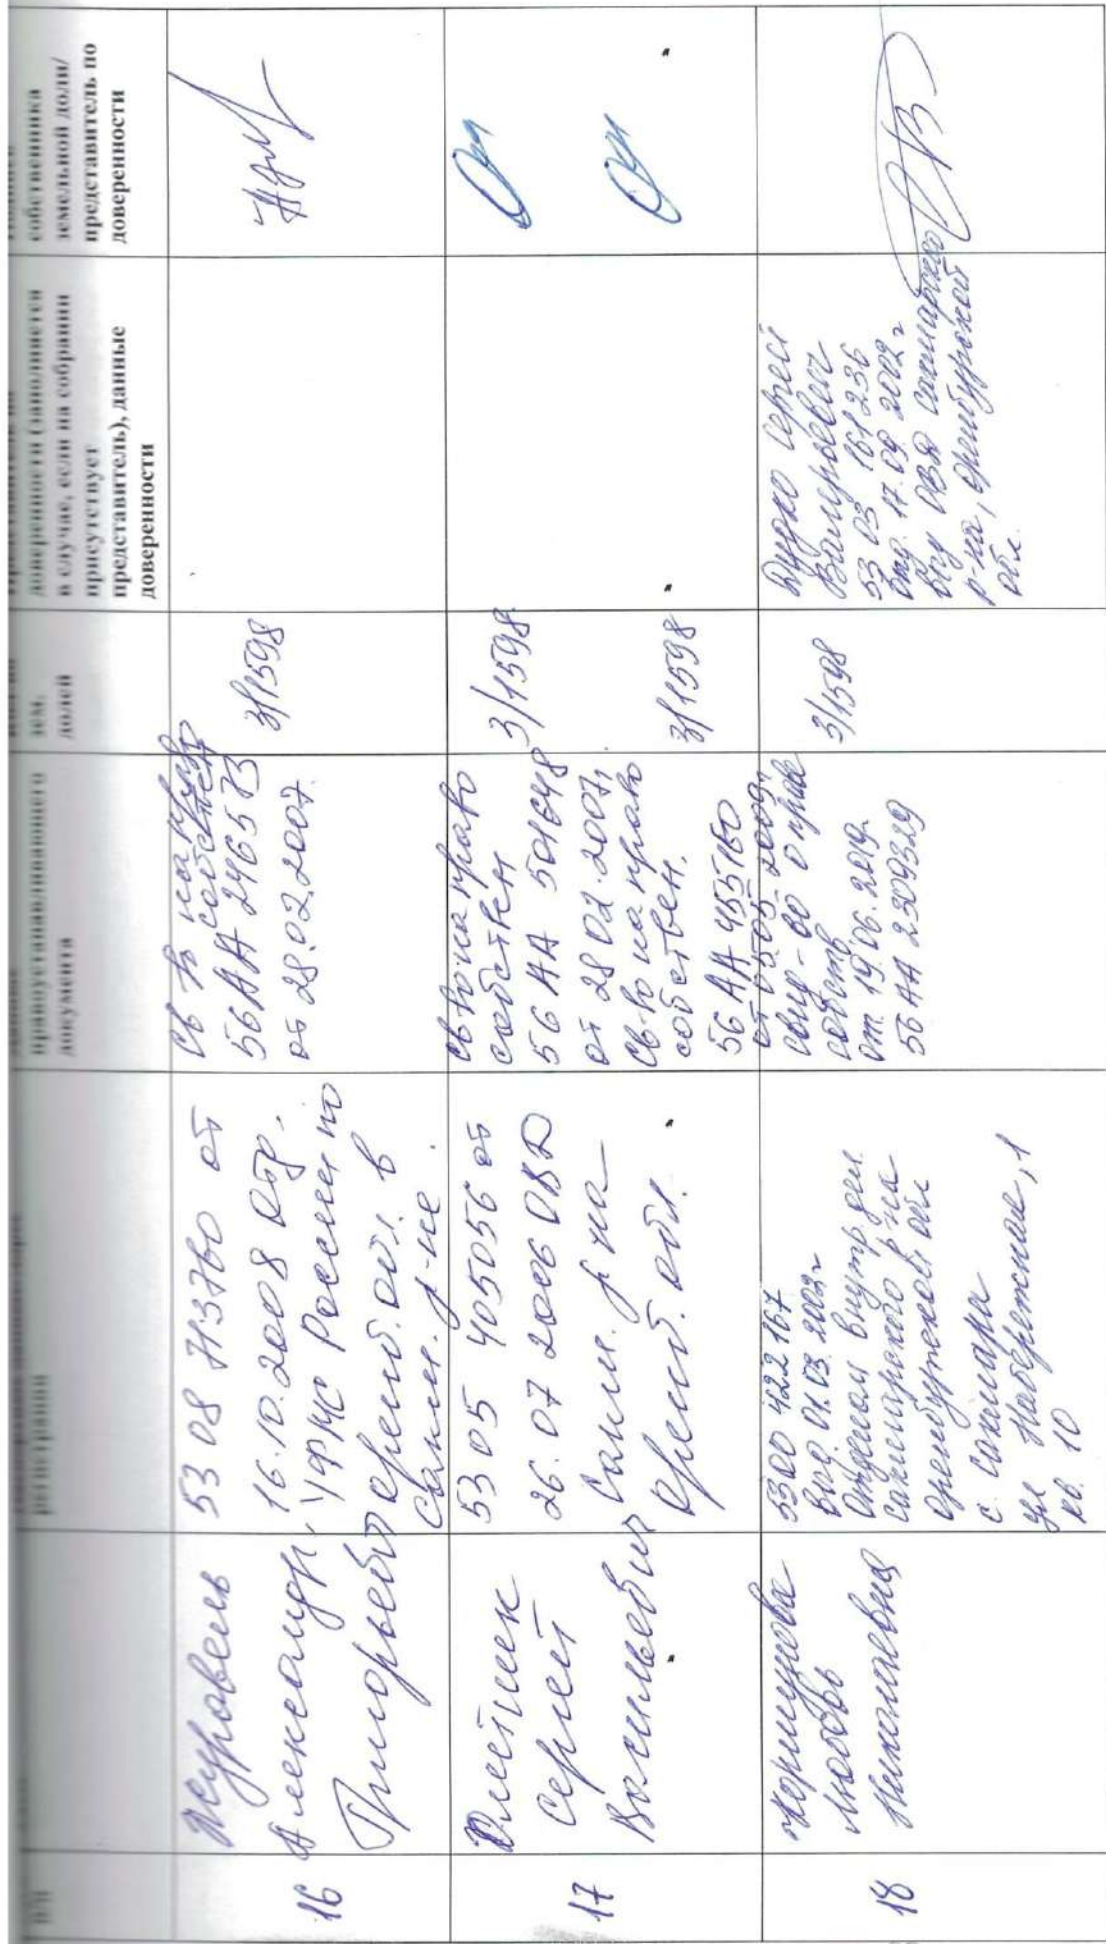 п/п
регистрации
правоустанавливающего
документа
зем.
долей
доверенности (заполняется
в случае, если на собрании
присутствует
представитель), данные
доверенности
собственника
земельной доли/
представитель по
доверенности
16
Журавель
Александр
Григорьевич
53 08 713760 от
16.10.2008 отд.
УФМС России по
Оренб. обл. в
Сакм. р-не
св-во на право
собствен
56 АА 246573
от 28.02.2007.
3/1598
17
Сергей
Васильевич
53 05 405056 от
26.07 2006 ОВД
Сакм. р-на
Оренб. обл.
св-во на право
собствен
56 АА 501648
от 28 02.2007г.
Св-во на право
собствен.
56 АА 455150
от 05 05 2009г.
3/1598
3/1598
18
Коршунова
Любовь
Николаевна
53 00 422167
выд. 01.03.2002г
Отделом внутр. дел
Сакмарского р-на
Оренбургской обл
с. Сакмара
ул Набережная, 1
кв. 10
свид-во о праве
собств
от. 19.06.2010.
56 АА 2309329
3/1598
Дудко Сергей
Валерьевич
53 03 161236
выд. 17.09.2002г
ОВД Сакмарского
р-на, Оренбургской
обл.